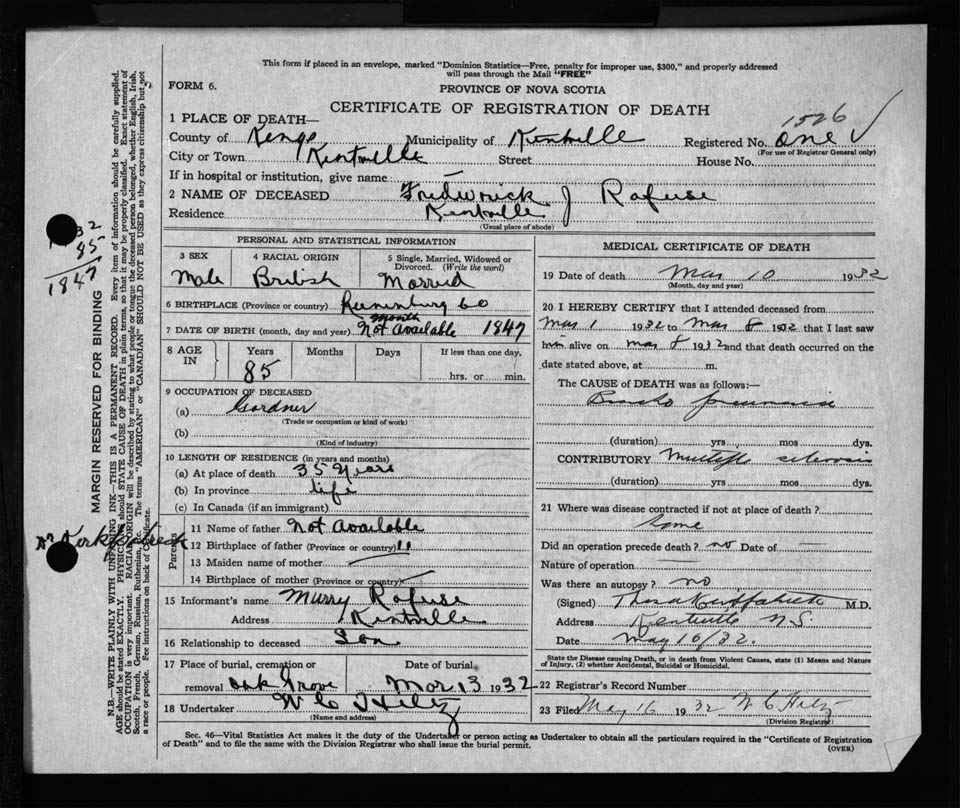 This form if placed in an envelope, marked "Dominion Statistics—Free, penalty for improper use, $300," and properly addressed
will pass through the Mail "FREE"
FORM 6.
PROVINCE OF NOVA SCOTIA
CERTIFICATE OF REGISTRATION OF DEATH
1526
1 PLACE OF DEATH—
County of Kings Municipality of Kentville Registered No. One
(For use of Registrar General only)
City or Town Kentville Street House No.
If in hospital or institution, give name —
2 NAME OF DECEASED Frederick J Rafuse
Residence Kentville
(Usual place of abode)
PERSONAL AND STATISTICAL INFORMATION
3 SEX 4 RACIAL ORIGIN 5 Single, Married, Widowed or
Divorced. (Write the word)
Male British Married
6 BIRTHPLACE (Province or country) Lunenburg Co
month
7 DATE OF BIRTH (month, day and year) Not Available 1847
8 AGE IN Years Months Days If less than one day,
85 hrs. or min.
9 OCCUPATION OF DECEASED
(a) Gardner
(Trade or occupation or kind of work)
(b)
(Kind of industry)
10 LENGTH OF RESIDENCE (in years and months)
(a) At place of death 35 Years
(b) In province life
(c) In Canada (if an immigrant)
Parents
11 Name of father Not Available
12 Birthplace of father (Province or country) 11
13 Maiden name of mother
14 Birthplace of mother (Province or country)
15 Informant's name Murry Rafuse
Address Kentville
16 Relationship to deceased Son
17 Place of burial, cremation or Date of burial
removal Oak Grove Mar 13 1932
18 Undertaker W C Hiltz
(Name and address)
MEDICAL CERTIFICATE OF DEATH
19 Date of death Mar 10 1932
(Month, day and year)
20 I HEREBY CERTIFY that I attended deceased from
Mar 1 1932 to Mar 8 1932 that I last saw
him alive on Mar 8 1932 and that death occurred on the
date stated above, at m.
The CAUSE of DEATH was as follows:—
Broncho pneumonia
(duration) yrs mos dys.
CONTRIBUTORY Multiple sclerosis
(duration) yrs. mos. dys.
21 Where was disease contracted if not at place of death?
Same
Did an operation precede death? no Date of —
Nature of operation —
Was there an autopsy? no
(Signed) M.D.
Address Kentville N.S.
Date May 16/32.
State the Disease causing Death, or in death from Violent Causes, state (1) Means and Nature
of Injury, (2) whether Accidental, Suicidal or Homicidal.
22 Registrar's Record Number
23 Filed May 16 1932 W C Hiltz
(Division Registrar)
Sec. 46—Vital Statistics Act makes it the duty of the Undertaker or person acting as Undertaker to obtain all the particulars required in the "Certificate of Registration
of Death" and to file the same with the Division Registrar who shall issue the burial permit.
(OVER)
32
85
1847
MARGIN RESERVED FOR BINDING
N.B.—WRITE PLAINLY WITH UNFADING INK—THIS IS A PERMANENT RECORD. Every item of information should be carefully supplied.
AGE should be stated EXACTLY. PHYSICIANS should STATE CAUSE OF DEATH in plain terms, so that it may be properly classified. Exact statement of
OCCUPATION is very important. RACIAL ORIGIN will be described by stating to what people or tongue the deceased person belonged, whether English, Irish,
Scotch, French, German, Russian, Ruthenian, etc. The terms "AMERICAN" or "CANADIAN" SHOULD NOT BE USED as they express citizenship but not
a race or people. Fee instructions on back of Certificate.